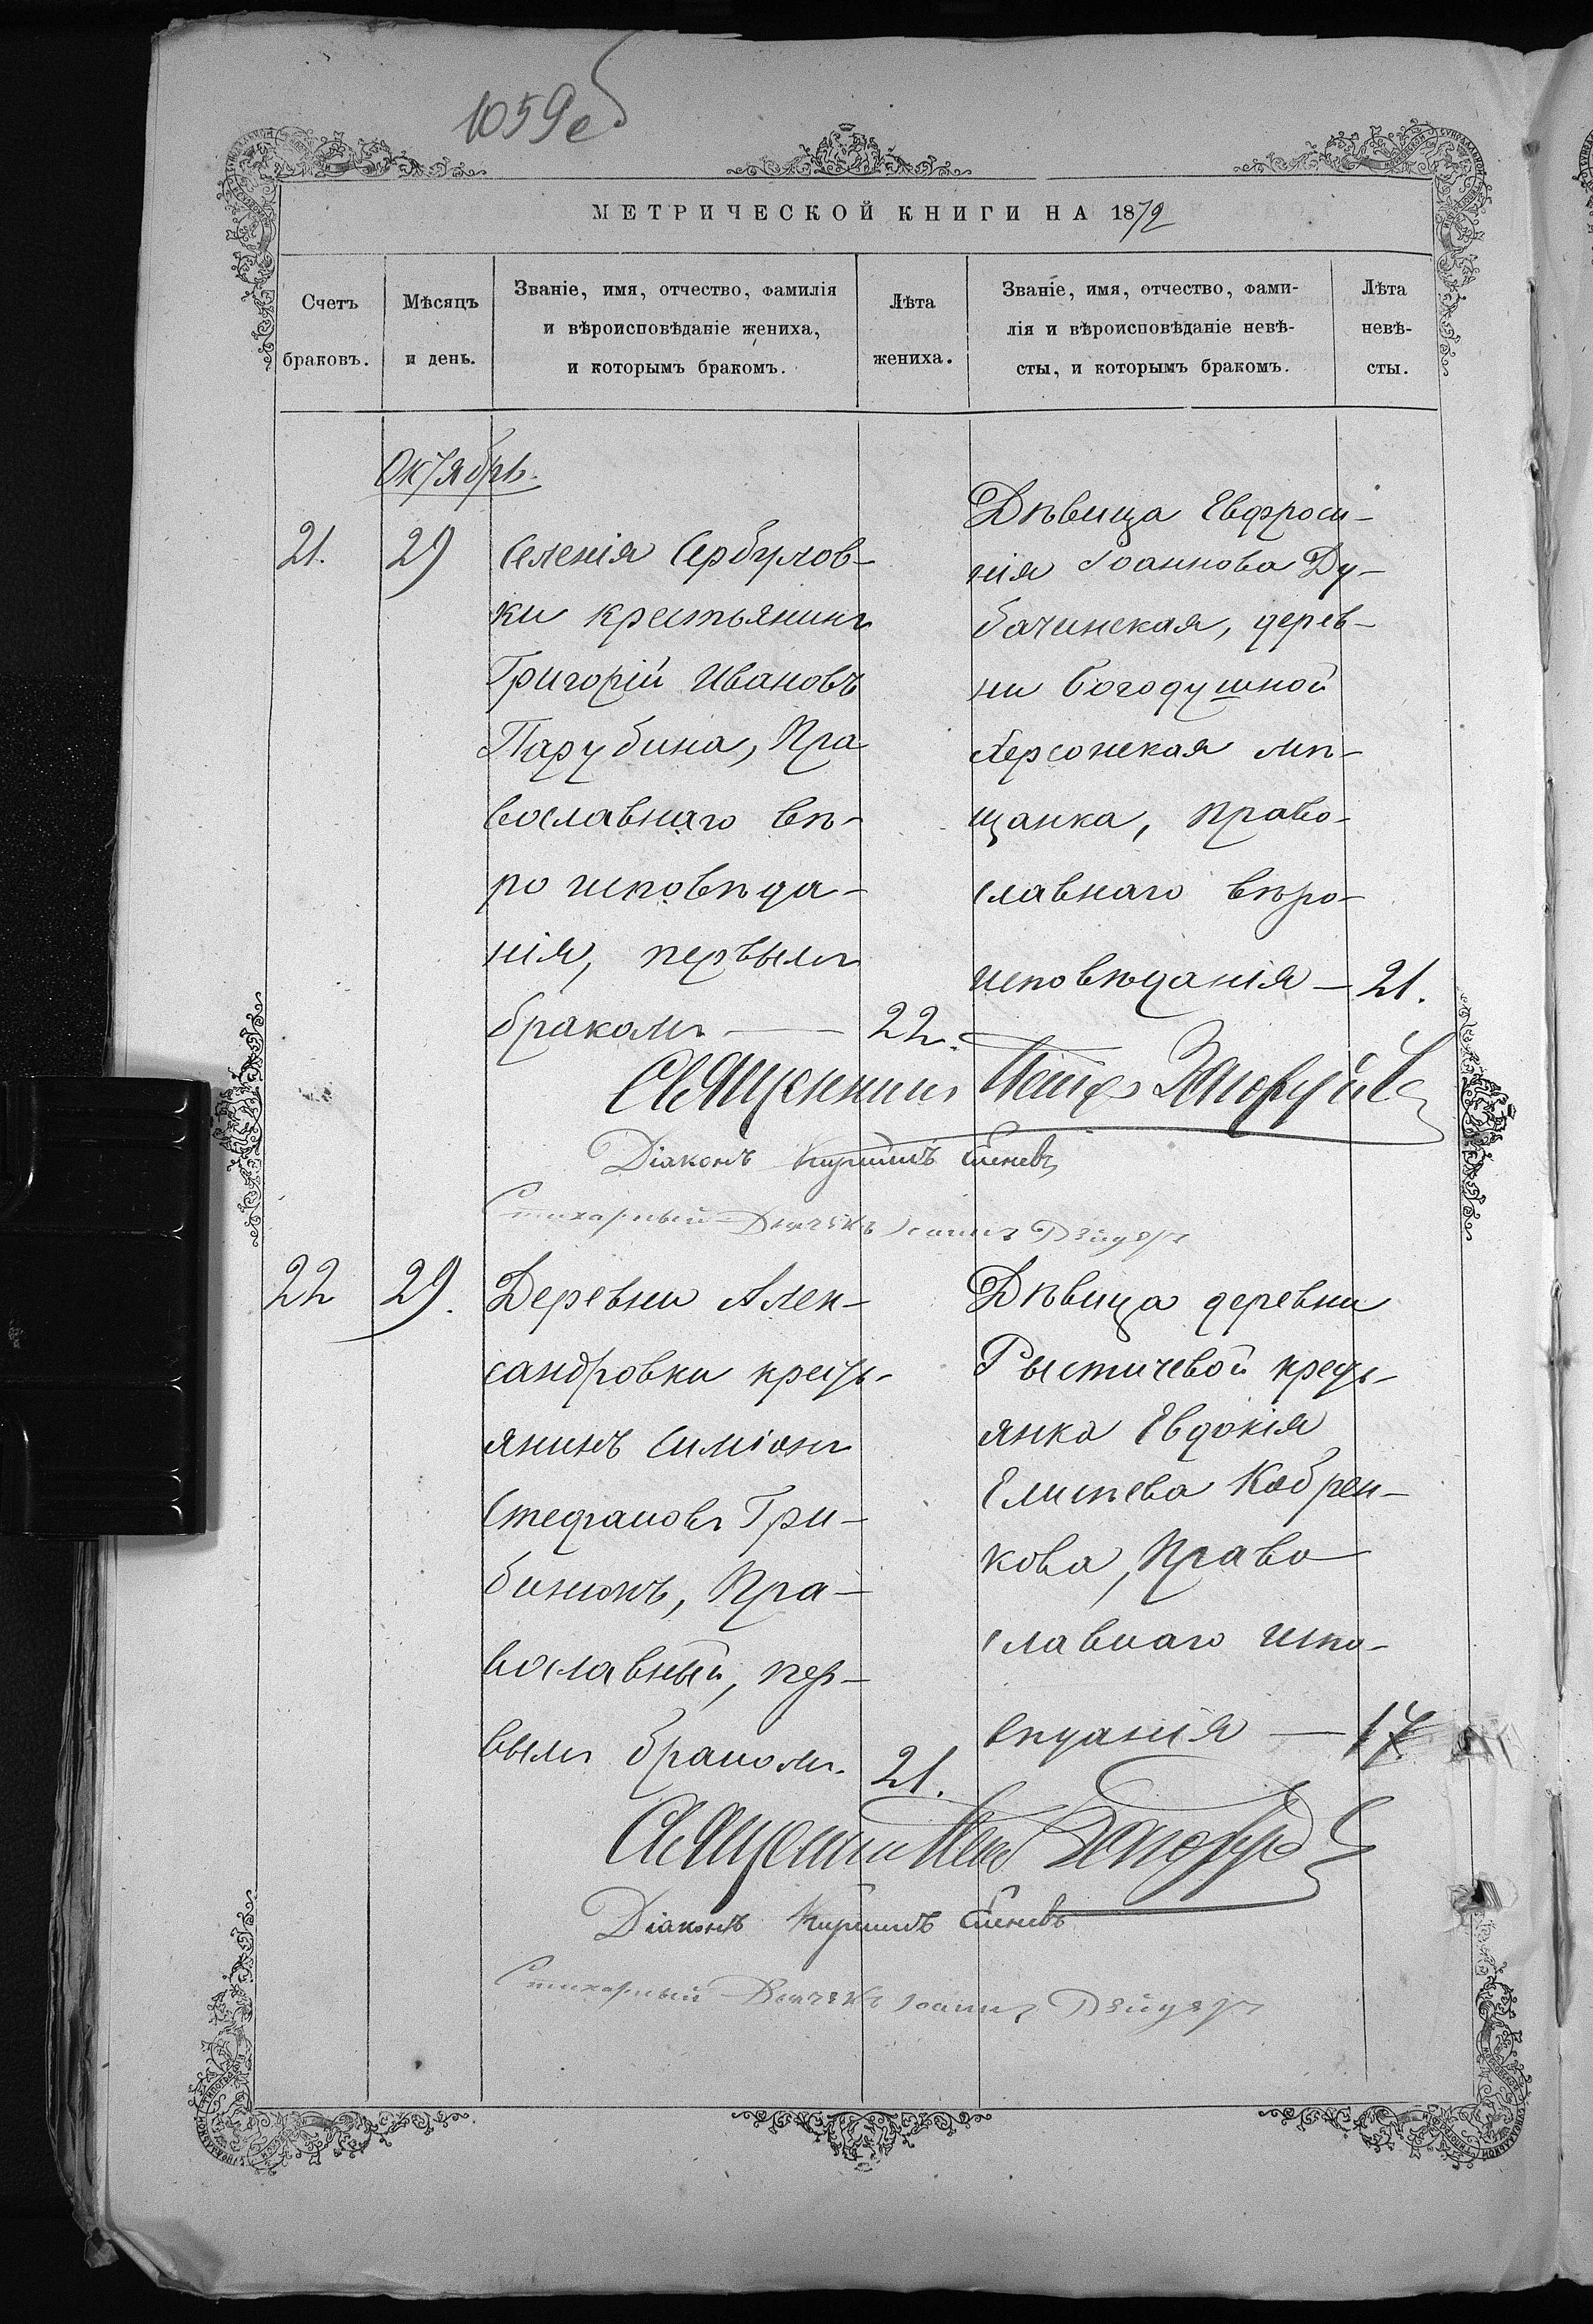 1059об
МЕТРИЧЕСКОЙ КНИГИ НА 1872
Счетъ
браковъ.
Мѣсяцъ
и день.
Званіе, имя, отчество, фамилія
и вѣроисповѣданіе жениха,
и которымъ бракомъ.
Лѣта
жениха.
Званіе, имя, отчество, фами-
лія и вѣроисповѣданіе невѣ-
сты, и которымъ бракомъ.
Лѣта
невѣ-
сты.
Октябрь.
21.
29
Селенія Сербулов-
ки крестьянинъ
Григорій Ивановъ
Парубина, Пра
вославнаго вѣ-
роисповѣда-
нія, первымъ
бракомъ — 22.
Дѣвица Евфроси-
нія Іоаннова Ду-
бачинская, дерев-
ни Богодушной
Херсонская мѣ-
щанка, Право-
славнаго вѣро-
исповѣданія — 21.
Священникъ
Діаконъ Кириллъ
Стихарный Дьячекъ Іоаннъ
22
29.
Деревни Алек-
сандровки кресть-
янинъ Симіонъ
Стефановъ Гри-
бинюкъ, Пра-
вославный, пер-
вымъ бракомъ. 21.
Дѣвица деревни
кресть-
янка Евдокія
Елисѣева
кова, Право
славнаго испо-
вѣданія — 17
Священникъ
Діаконъ Кириллъ
Стихарный Дьячекъ Іоаннъ